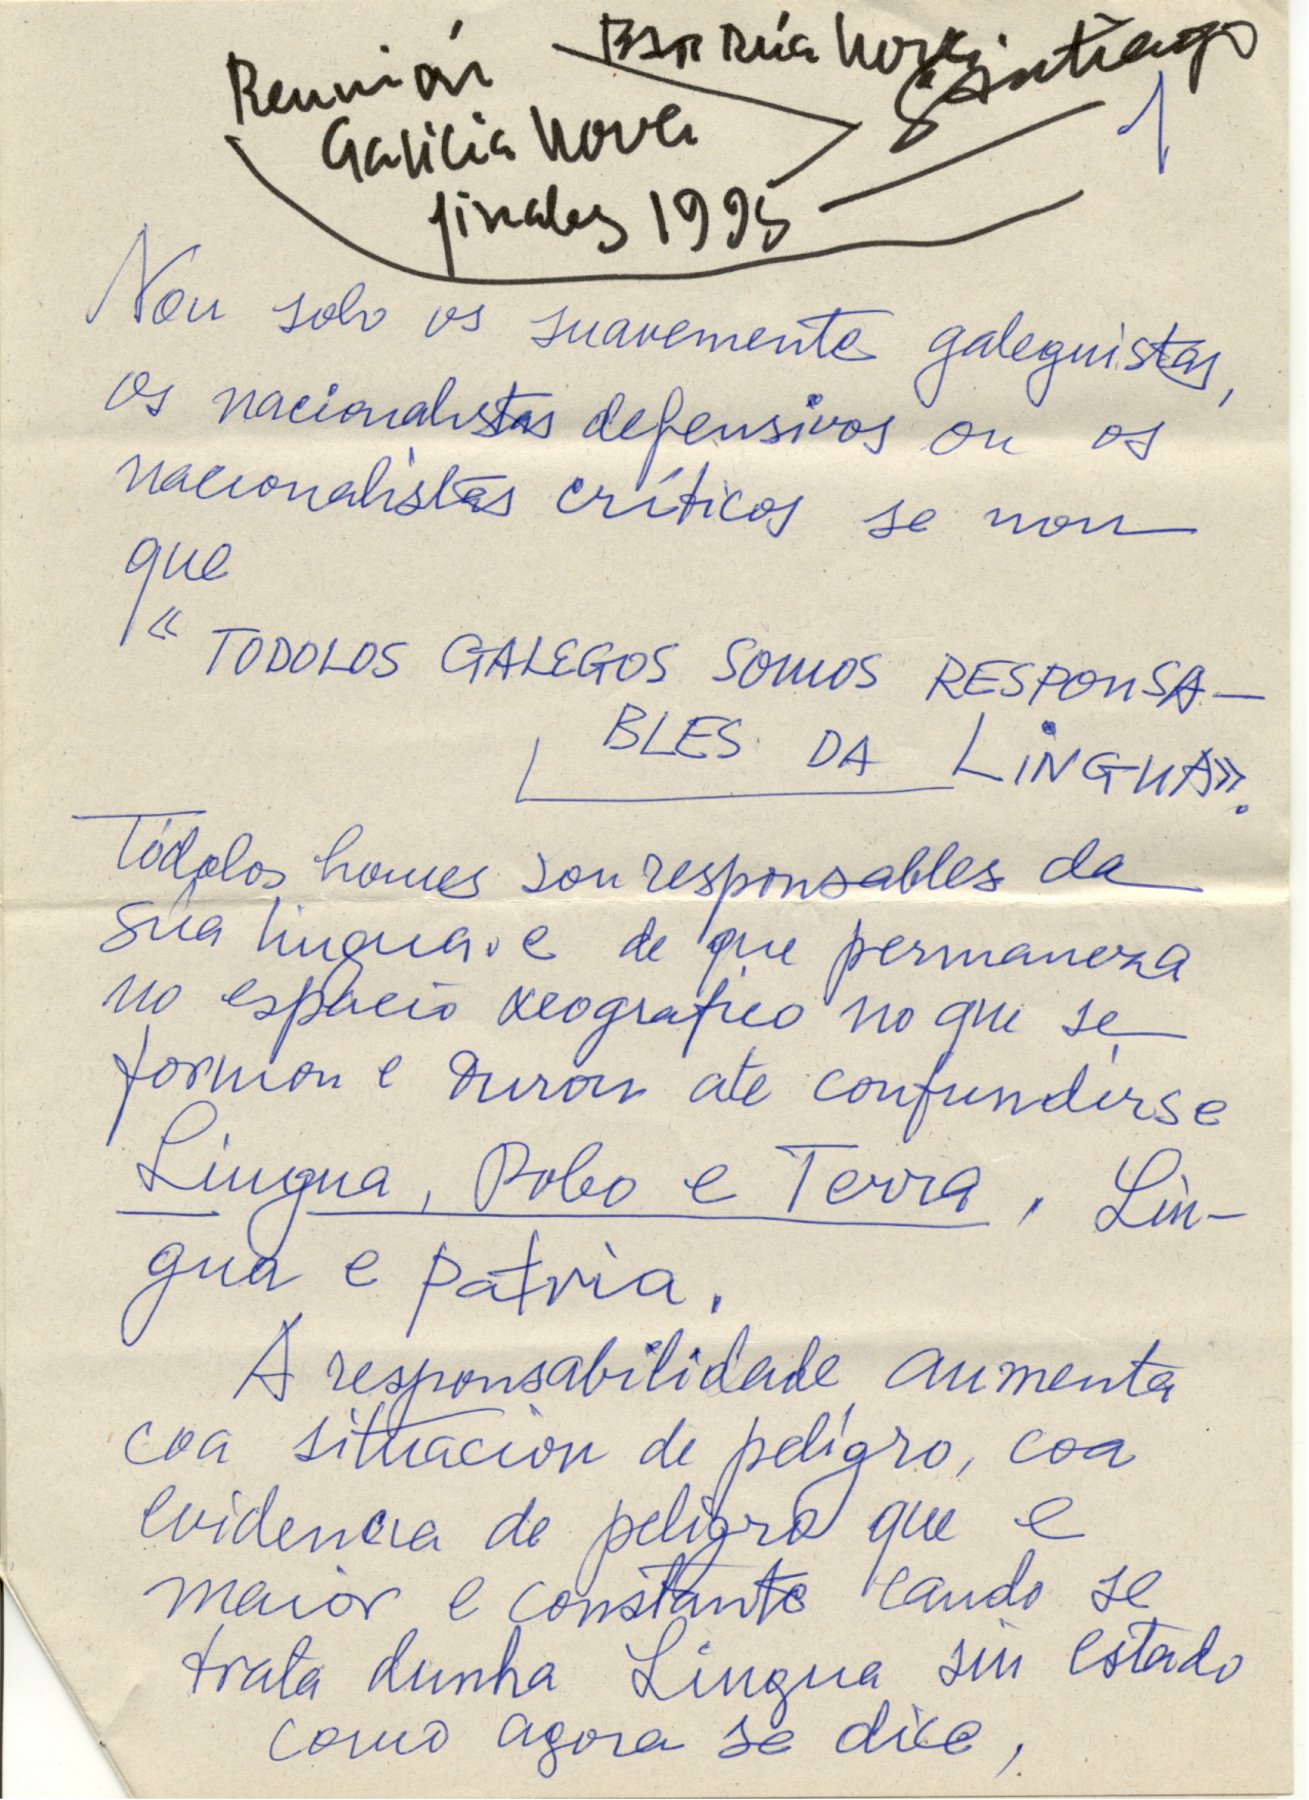 Reunión
Rúa Nova
Santiago
Galicia Nova
finales 1995
1
Non solo os suavemente galeguistas,
os nacionalistas defensivos ou os
nacionalistas críticos se non
que
« TODOLOS GALEGOS SOMOS RESPONSA-
BLES DA LINGUA».
Tódolos homes son responsables da
sua lingua. e de que permaneza
no espacio xeografico no que se
formou e durou ate confundirse
Lingua, Pobo e Terra, Lin-
gua e patria.
A responsabilidade aumenta
coa situacion de peligro, coa
evidencia de peligro que e
maior e constante cando se
trata dunha Lingua sin estado
como agora se dice,